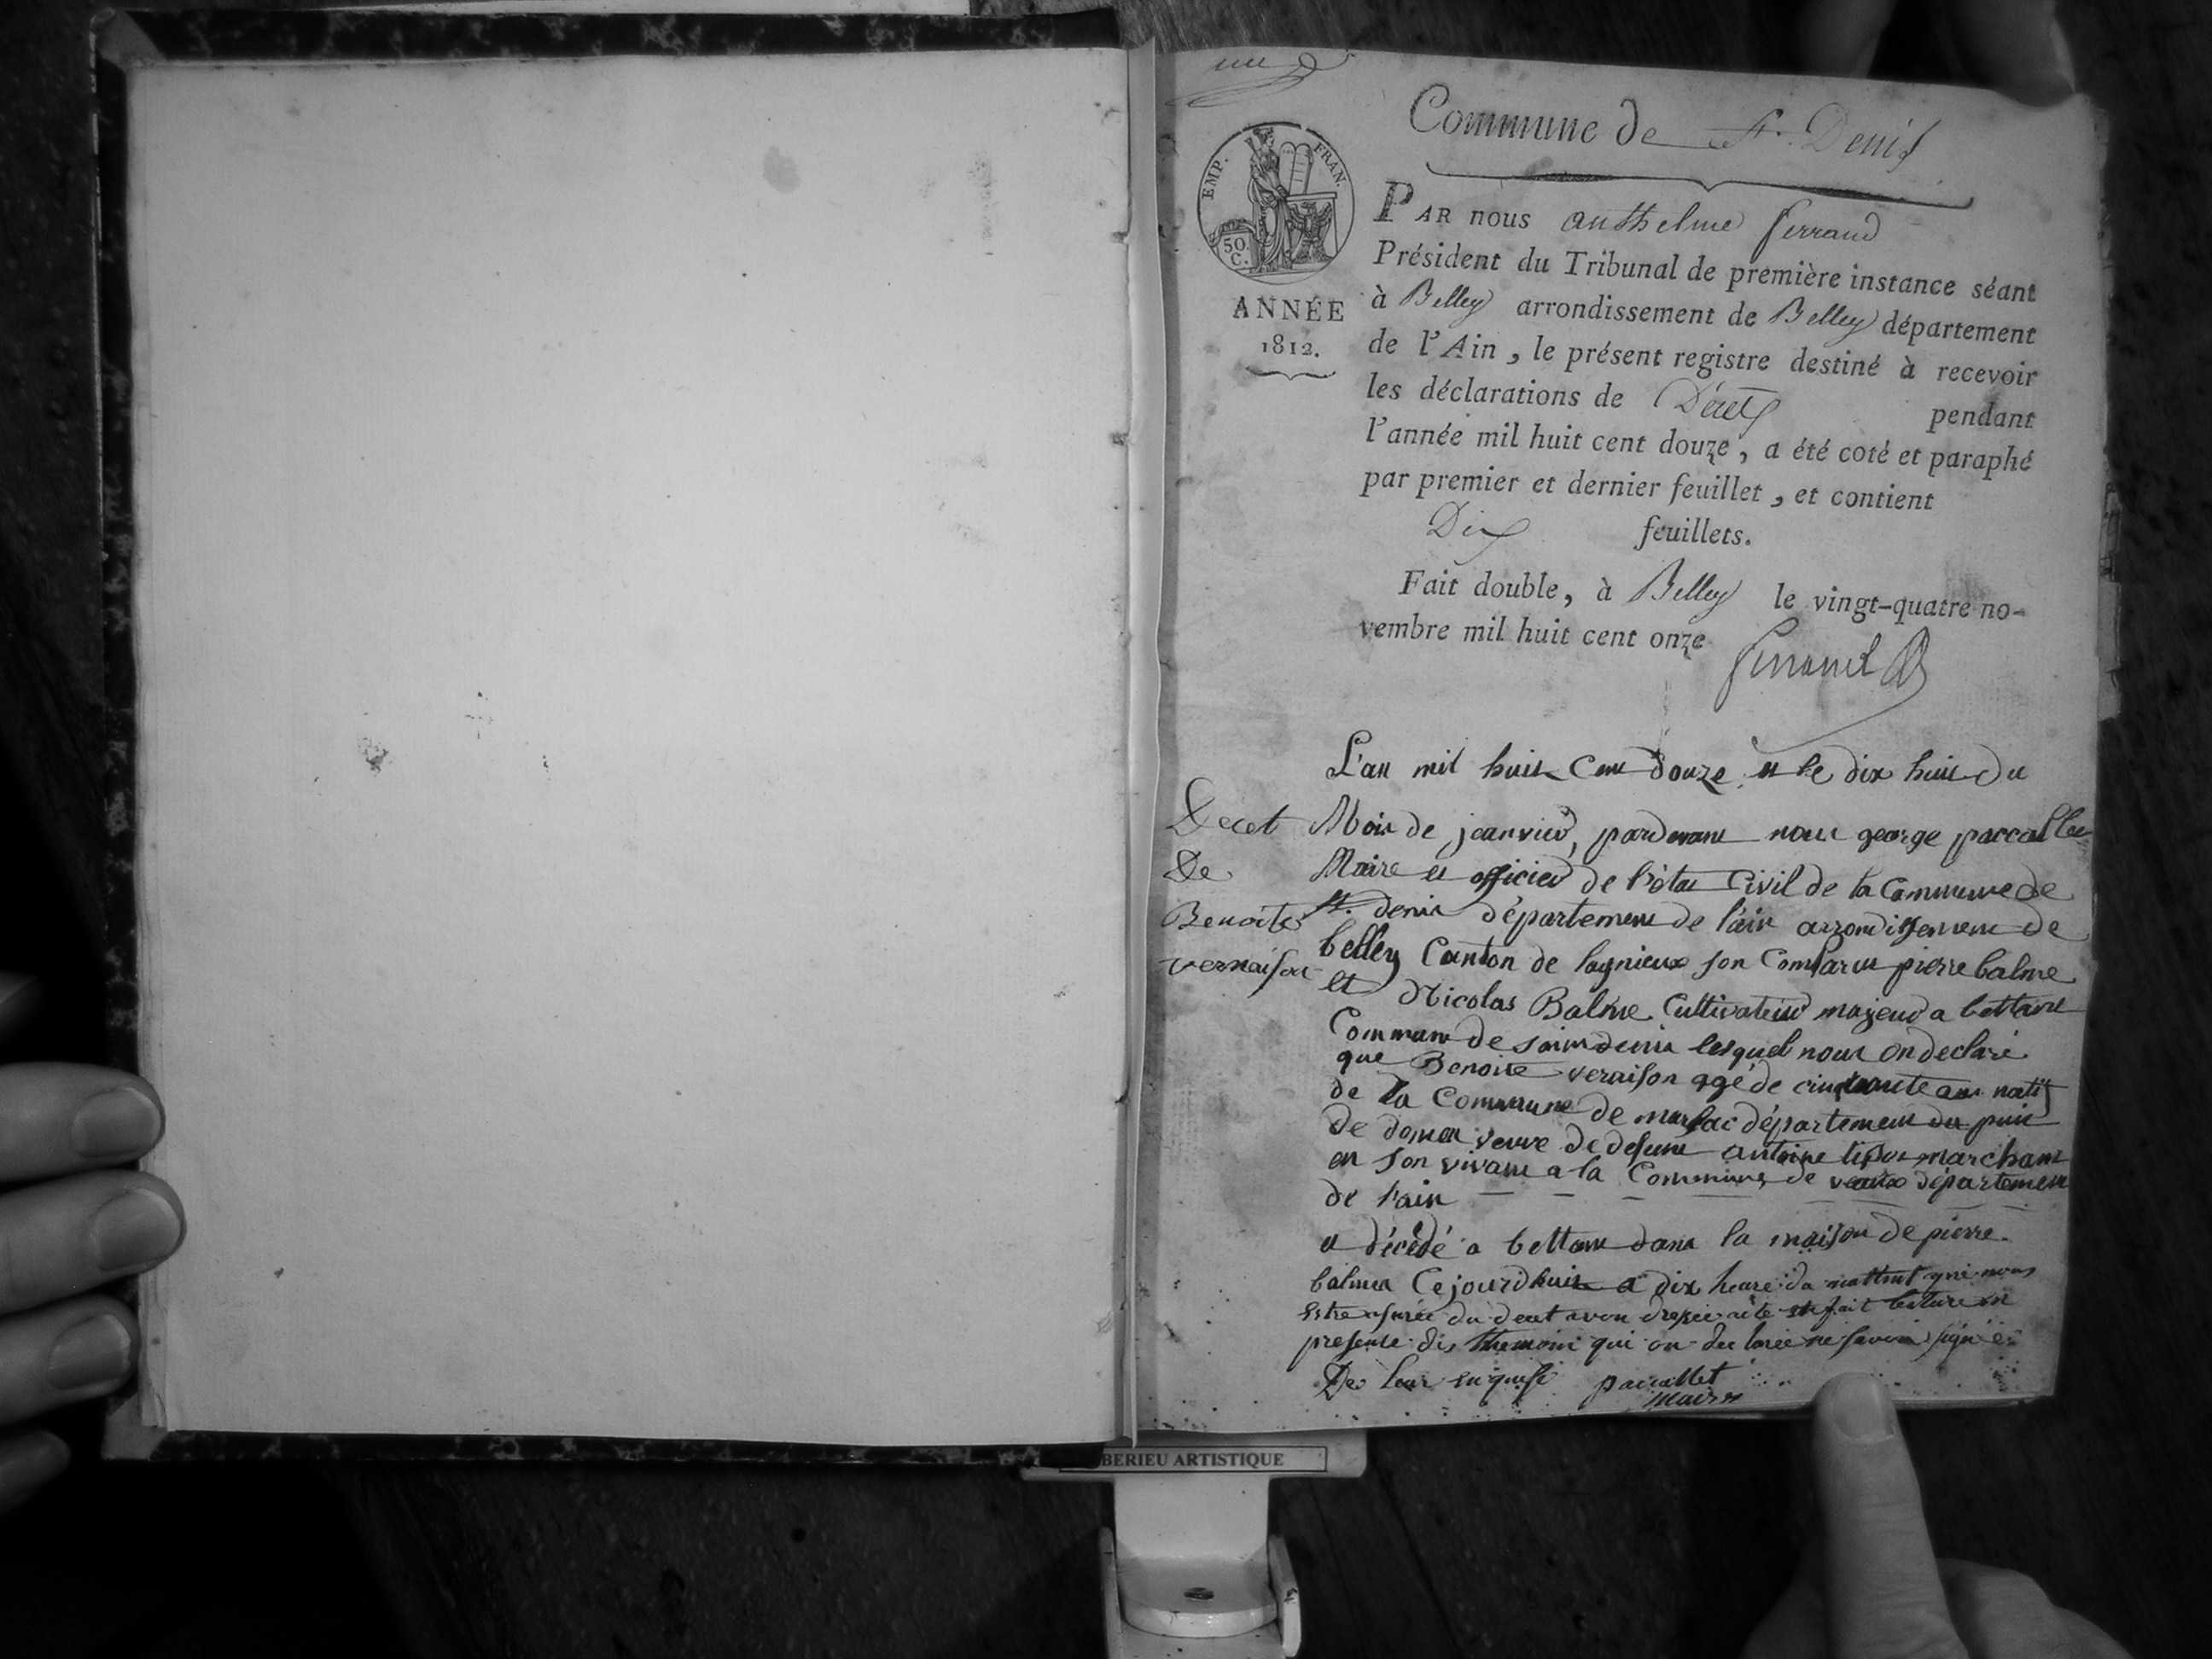 une
Commune de St. Denis
EMP. FRAN.
50 C.
ANNÉE
1812.
PAR nous anthelme ferrand
Président du Tribunal de première instance séant
à Belley arrondissement de Belley département
de l'Ain, le présent registre destiné à recevoir
les déclarations de Décès pendant
l'année mil huit cent douze, a été coté et paraphé
par premier et dernier feuillet, et contient
Dix feuillets.
Fait double, à Belley le vingt-quatre no-
vembre mil huit cent onze
Decet
De
Benoite
vernaison
L'an mil huit Cent douze et le dix huit du
Mois de janvier, pardevant nous george paccallet
Maire et officier de l'état Civil de la Commune de
st. denis département de l'ain arrondissement de
belley Canton de lagnieux son Comparus pierre balme
et Nicolas Balme Cultivateur majeur a bettant
Commune de saint denis lesquel nous on declaré
que Benoite veraison agé de cinquante ans natif
de la Commune de marsac département du puis
de domes veuve de defunt antoine marchant
en son vivant a la Commune de veaux département
de l'ain
a décédé a bettant dans la maison de pierre
balmes Cejourdhuit a dix heure du mattint qui nous
estre asurée du decet avon dressée acte et fait lecture en
presence des themoins qui on declarée ne savoir signé
De leur enquise paccallet
maire
BERIEU ARTISTIQUE